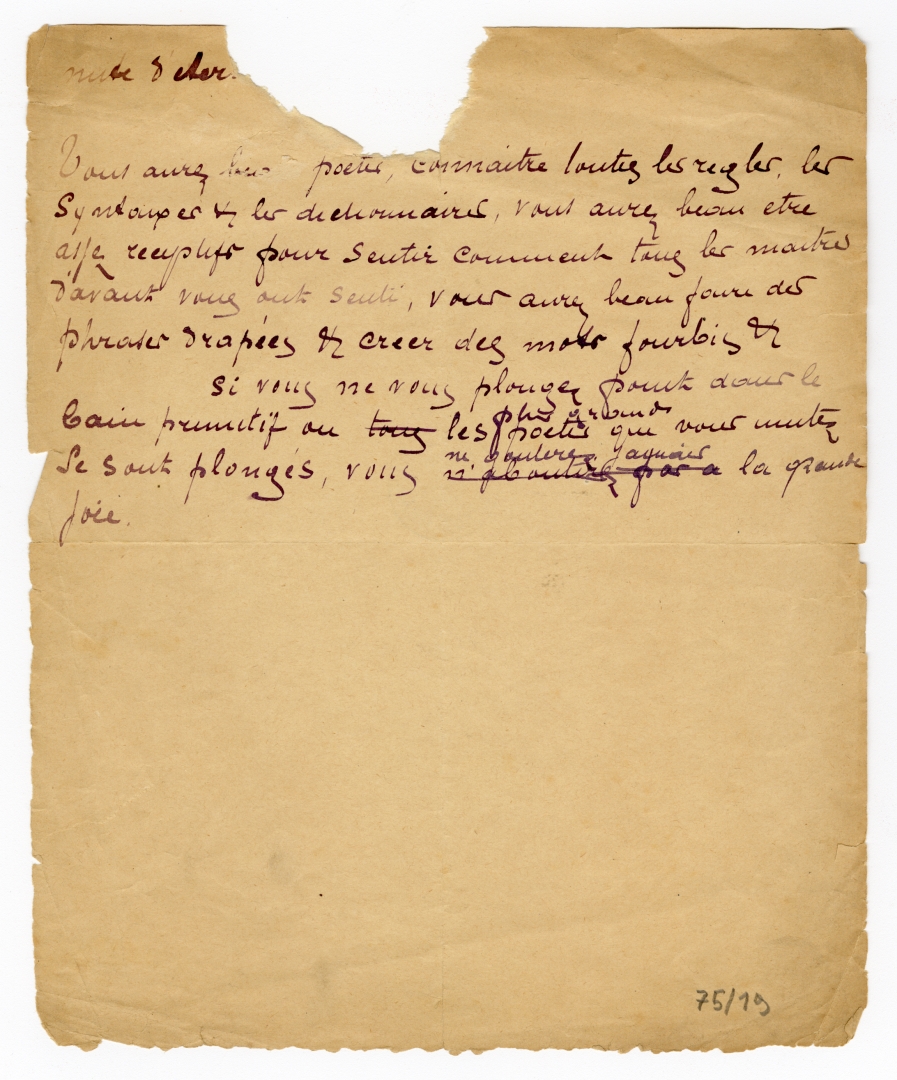 d'
Vous aurez poetes, connaitre toutes les regles, les
Syntaxes & les dictionnaires, vous aurez beau etre
assez receptifs pour sentir comment tous les maitres
d'avant vous ont senti, vous aurez beau faire des
phrases drapées & creer des mots fourbis &
si vous ne vous plongez point dans le
bain primitif ou tous les plus grands poetes que vous imitez
se sont plongés, vous ne gouterez jamais n'aboutirez pas a la grande
joie.
75/19